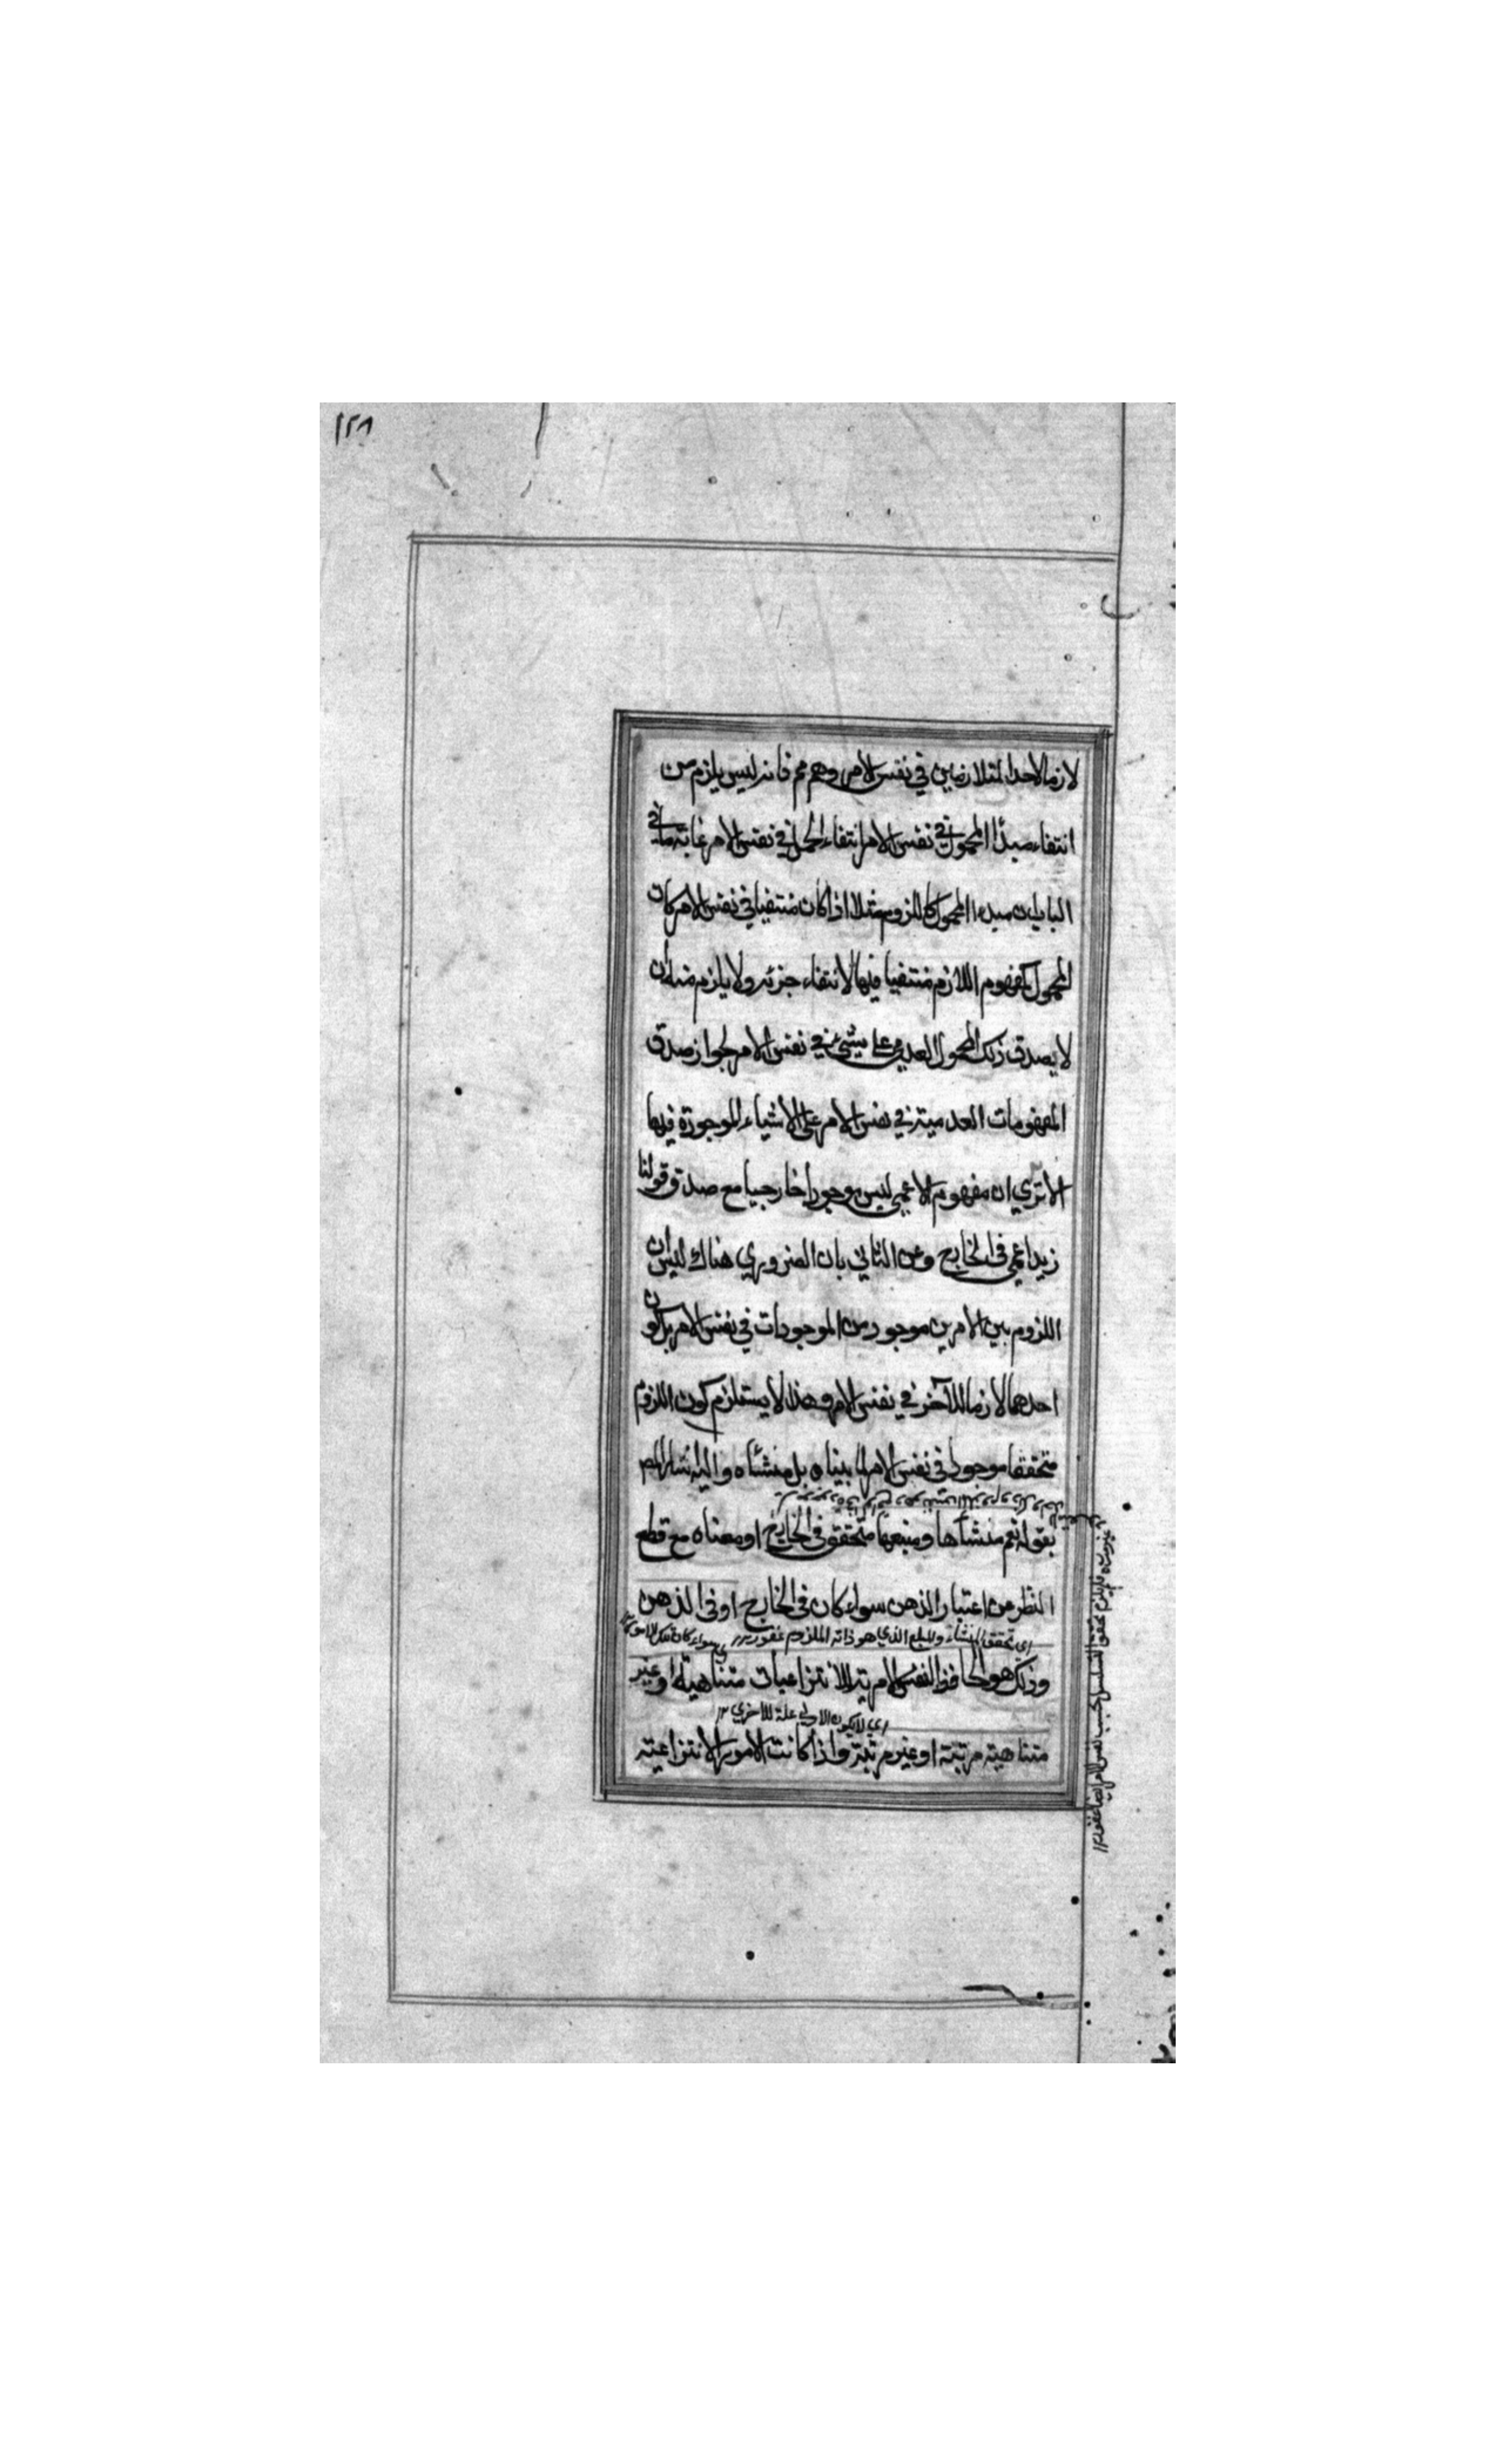 ١٢٨
لازما لاحد المتلازمين في نفس الامر وهم فانه ليس يلزم من
انتفاء مبدأ المحمول في نفس الامر انتفاء الحمل في نفس الامر غاية ما في
الباب ان مبدء المحمول كاللزوم مثلا اذا كان منتفيا في نفس الامر كان
المحمول كمفهوم اللازم منتفيا فيها لانتفاء جزئه ولا يلزم منه ان
لا يصدق ذلك المحمول العدمي على شيئ في نفس الامر لجواز صدق
المفهومات العدمية في نفس الامر على الاشياء الموجودة فيها
الا تري ان مفهوم الاعمي ليس موجودا خارجيا مع صدق قولنا
زيد اعمي في الخارج وعن الثاني بان الضروري هناك ليس ان
اللزوم بين الامرين موجود من الموجودات في نفس الامر بل كون
احدهما لازما للآخر في نفس الامر وهذا لا يستلزم كون اللزوم
متحققا موجودا في نفس الامر بل منشأه واليه اشار المص
بقوله نعم منشأها ومنبعها متحقق في الخارج او معناه مع قطع
النظر من اعتبار الذهن سواء كان في الخارج او في الذهن
اي تحقق المنشاء والمبلغ الذي هو ذاته الملزوم سواء كان
وذلك هو الحافظ لنفس الامرية الانتزاعيات متناهية او غير
اي لا يكون الاولي علة للاخري ١٢
متناهية مرتبة او غير مرتبة واذا كانت الامور الانتزاعية
فلا يلزم تحقق التسلسل بحسب نفس الامر ايضا